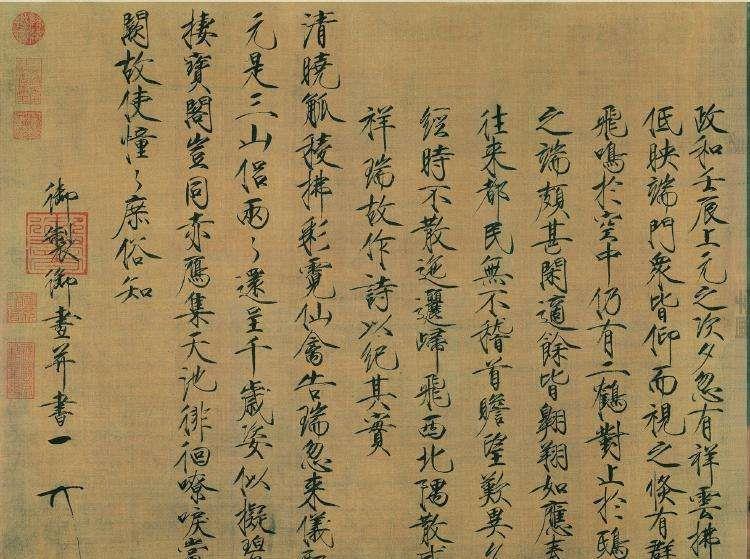 政和壬辰上元之次夕忽有祥雲拂
低映端門衆皆仰而視之倏有群
飛鳴於空中仍有二鶴對止於鴟
之端頗甚閑適餘皆翱翔如應奏
往来都民無不稽首瞻望歎異
經時不散迤邐歸飛西北隅散
祥瑞故作詩以紀其實
清曉觚稜拂彩霓仙禽告瑞忽来儀
元是三山侶兩〻還呈千歲姿似擬碧
棲寳閣豈同赤鴈集天池徘徊嘹唳當
闕故使憧〻庶俗知
御製御畫并書